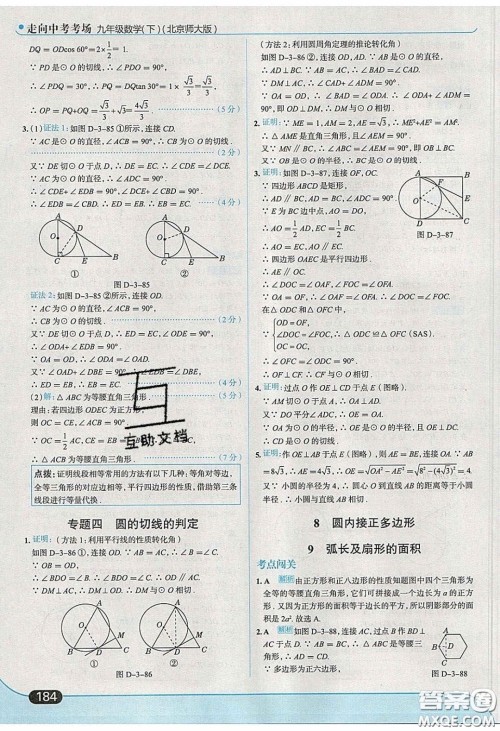 走向中考考场 九年级数学(下)(北京师大版)
DQ = ODcos 60° = 2×1/2 = 1.
∵ PD 是⊙O 的切线, ∴ ∠PDO = 90°,
∴ ∠PDQ = 30°, ∴ PQ = DQtan 30° = 1×√3/3 = √3/3,
∴ OP = PQ+OQ = √3/3+√3 = 4√3/3. (5 分)
3. (1) 证法 1: 如图 D-3-85 ①所示, 连接 CD.
∵ AC 是⊙O 的直径, ∠ACB = 90°,
∴ CB 为⊙O 的切线. (2 分)
又∵ DE 切⊙O 于点 D, ∴ ED = EC, ∴ ∠CDE = ∠DCE.
∵ AC 是⊙O 的直径, ∴ ∠ADC = 90°,
∴ ∠CDE+∠EDB = 90°, ∠DCE+∠CBD = 90°,
∴ ∠EDB = ∠CBD, ∴ ED = EB, ∴ EB = EC. (4 分)
A
D
C
E
B
①
A
O
D
C
E
B
②
图 D-3-85
证法 2: 如图 D-3-85 ②所示, 连接 OD.
∵ AC 为⊙O 的直径, ∠ACB = 90°,
∴ CB 为⊙O 的切线. (2 分)
又∵ DE 切⊙O 于点 D, ∴ ED = EC, ∠ODE = 90°,
∴ ∠ODA+∠EDB = 90°.
∵ OA = OD, ∴ ∠ODA = ∠OAD.
又∵ ∠OAD+∠DBE = 90°, ∴ ∠EDB = ∠DBE,
∴ ED = EB, ∴ EB = EC. (4 分)
(2) 解: △ABC 为等腰直角三角形.
理由: 若四边形 ODEC 为正方形
则 OC = CE
∵ OC = 1/2 AC, CE = EB = 1/2
∴ △ABC 为等腰直角三角形. (7 分)
互助文档
点拨: 证明线段相等常用的方法有以下几种: 等角对等边,
全等三角形的对应边相等, 平行四边形的性质, 借助第三条
线段进行等量代换.
专题四 圆的切线的判定
1. 证明: (方法 1: 利用平行线的性质转化角)
如图 D-3-86 ①, 连接 OD.
∵ OB = OD, ∴ ∠OBD = ∠BDO.
∵ AB = AC, ∴ ∠OBD = ∠C,
∴ ∠BDO = ∠C, ∴ BDO ∥ AC.
∵ DM⊥AC, ∴ OD⊥DM, ∴ DM 与⊙O 相切.
A
O
M
B
D
C
①
A
O
M
B
D
C
②
图 D-3-86
(方法 2: 利用圆周角定理的推论转化角)
如图 D-3-86 ②, 连接 OD, AD.
∵ AB 是⊙O 的直径, ∴ ∠ADB = 90°,
∴ AD⊥BC. ∵ AB = AC, ∴ ∠DAC = ∠DAB.
∵ OA = OD, ∴ ∠DAB = ∠ODA, ∴ ∠ODA+∠ADM = ∠DAC+∠ADM = 90°,
∴ OD⊥DM, ∴ DM 与⊙O 相切.
2. 证明: ∵ ME = 1, AM = 2, AE = √3, ∴ ME²+AE² = AM²,
∴ △AME 是直角三角形, 且∠AEM = 90°.
又∵ MN∥BC, ∴ ∠ABC = ∠AEM = 90°, ∴ AB⊥BC.
∵ AB 为⊙O 的直径, ∴ BC 是⊙O 的切线.
3. 证明: 如图 D-3-87, 连接 OE.
∵ 四边形 ABCD 是矩形,
∴ AD∥BC, AD = BC, ∠ADC = 90°.
∵ E 为 BC 边中点, AO = DO,
∴ AO = 1/2 AD, EC = 1/2 BC,
∴ AO = EC, AO∥EC,
∴ 四边形 OAEC 是平行四边形,
∴ AE∥OC,
∴ ∠DOC = ∠OAF, ∠FOC = ∠OFA.
∵ OA = OF, ∴ ∠OAF = ∠OFA, ∴ ∠DOC = ∠FOC.
在△ODC 和△OFC 中,
OD = OF,
∠DOC = ∠FOC, ∴ △ODC≌△OFC (SAS).
OC = OC,
∴ ∠OFC = ∠ODC = 90°,
∴ OF⊥CF. ∴ CF 与⊙O 相切.
A
F
B
O
E
D
C
图 D-3-87
4. 证明: 过点 O 作 OE⊥AC 于点 E (图略).
∵ AB = AC, D 为 BC 的中点, ∴ ∠BAO = ∠CAO.
又∵ DO⊥AB, OE⊥AC, ∴ OE = DO.
∵ AB 是⊙O 的切线, ∴ OD 是⊙O 的半径,
∴ OE 是⊙O 的半径, ∴ AC 是⊙O 的切线.
5. 证明: 过点 O 作 OE⊥AB 于点 E (图略), 则 AE = 1/2 AB. ∵ AB
= 8√3, ∴ AE = 4√3, ∴ OE = √OA²−AE² = √8²−(4√3)² = 4.
又∵ 小圆的半径为 4, ∴ 圆心 O 到直线 AB 的距离等于小圆的
半径, ∴ 小圆与直线 AB 相切.
8 圆内接正多边形
9 弧长及扇形的面积
考点闯关
1. A 解析 由正方形和正八边形的性质知题图中四个三角形为
全等的等腰直角三角形, 它们可拼接成一个边长为 a 的正方
形. 又因为正方形的面积等于边长的平方, 所以阴影部分的面
积是 2a². 故选 A.
2. A 解析 如图 D-3-88, 连接 BC.
∵ 多边形为正六边形,
A
B
C
图 D-3-88
184
答案圈
MXQE.COM